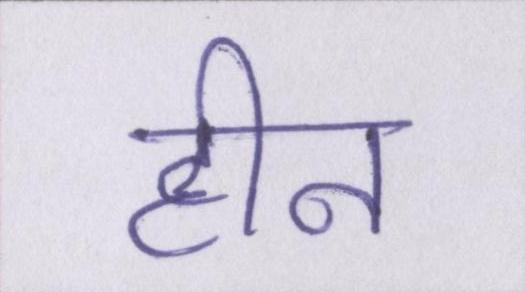 हीन